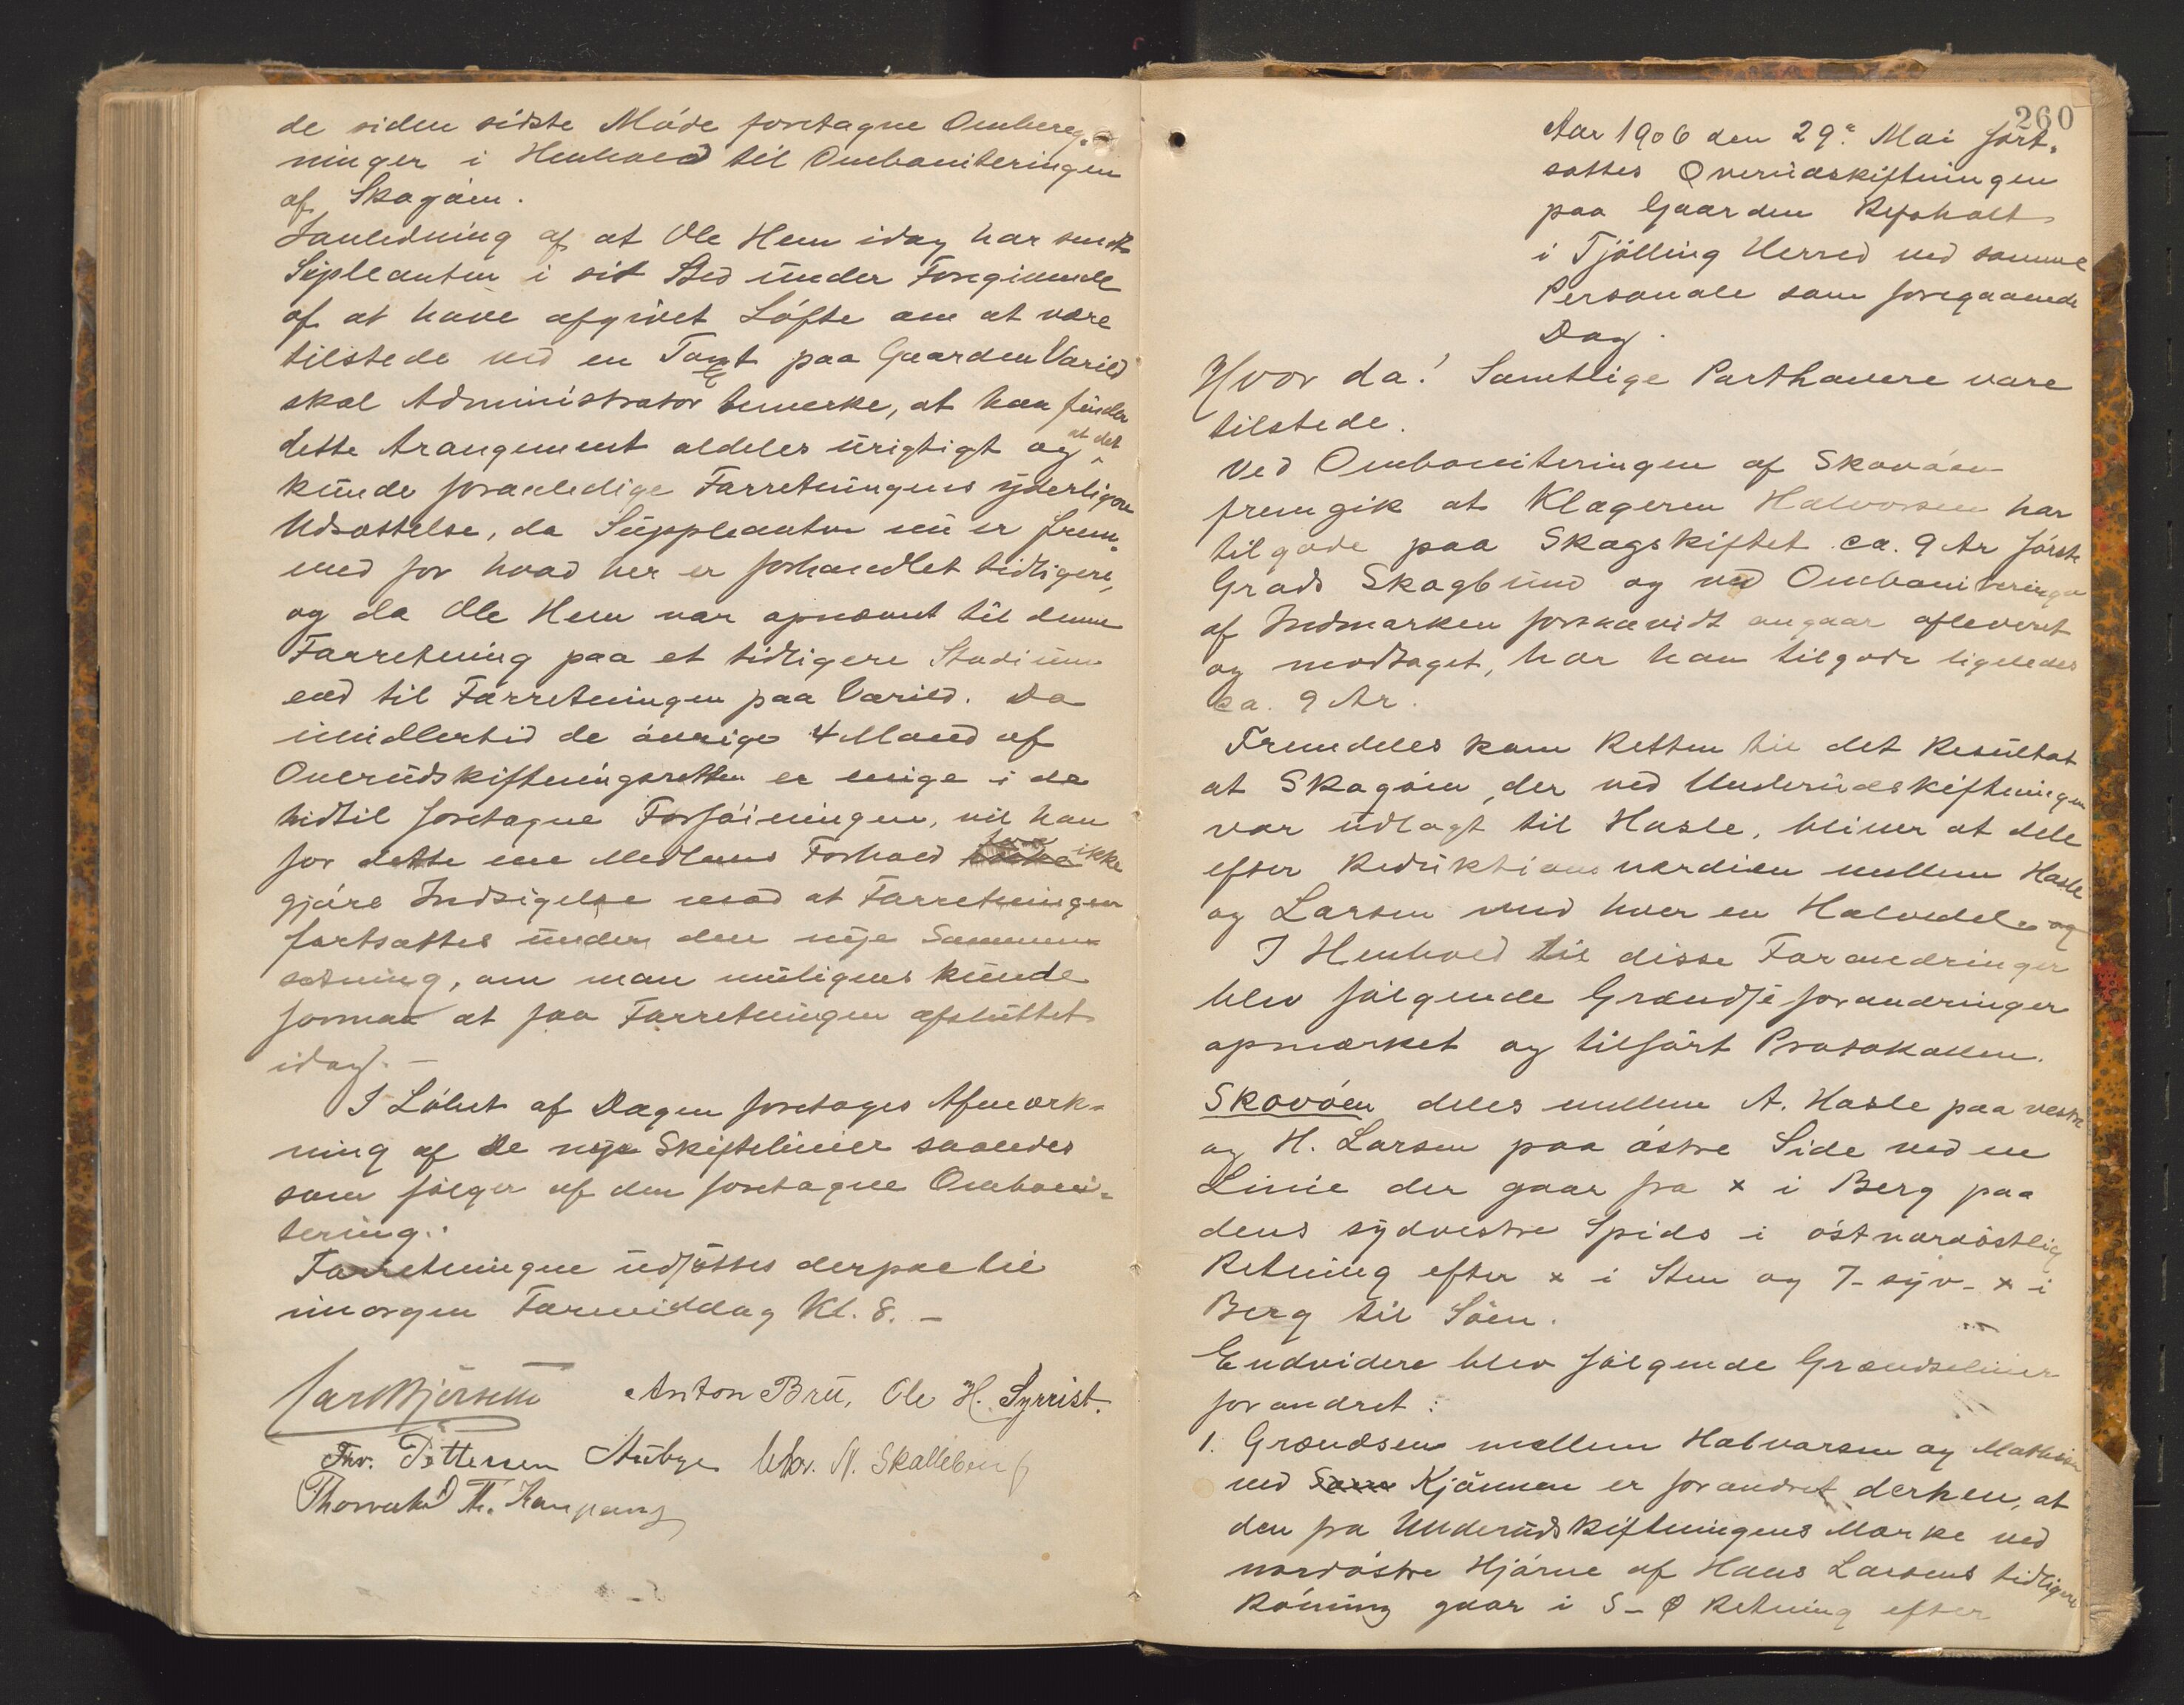 de siden sidste Møde foretagne Ombereg-
ninger i Henhold til Omboniteringen
af Skogøen.
Ianledning af at Ole Hem idag har sendt
Supleanten i sit Sted under Foregivende
af at have afgivet Løfte om at være
tilstede ved en Taxt paa Gaarden Varild
skal Administrator bemerke, at han finder
dette Arangement aldeles urigtigt og at det
kunde foranledige Forretningens yderligere
Udsættelse, da Suppleanten nu er frem-
med for hvad her er forhandlet tidligere,
og da Ole Hem var opnævnt til denne
Forretning paa et tidligere Stadium
end til Forretningen paa Varild. Da
imidlertid de øvrige 4 Mænd af
Overudskiftningsretten er enige i de
hidtil foretagne Forføininger, vil han
for dette ene Medlems Forhold ikke
gjøre Indsigelse mod at Forretningen
fortsættes under den nye Sammen-
sætning, om man muligens kunde
formaa at faa Forretningen afsluttet
idag. –
I Løbet af Dagen foretages Afmærk-
ning af de nye Skiftelinier saaledes
som følger af den foretagne Omboni-
tering.
Forretningen udsættes derpaa til
imorgen Formiddag Kl. 8. –
Carl Bjørseth Anton Bru, Ole H. Syrrist.
Fr. Pettersen Aubye Chr. N. Skalleberg
Thorvald Th. Kaupang
260
Aar 1906 den 29de Mai fort-
sattes Overudskiftningen
paa Gaarden Refsholt
i Tjølling Herred med samme
Personale som foregaaende
Dag.
Hvor da! Samtlige Parthavere vare
tilstede.
Ved Omboniteringen af Skovøen
fremgik at Klageren Halvorsen har
tilgode paa Skogskiftet ca. 9 Ar første
Grads Skogbund og ved Omboniteringen
af Indmarken forsaavidt angaar afleveret
og modtaget, har han tilgode ligeledes
ca. 9 Ar.
Fremdeles kom Retten til det Resultat
at Skogøen, der ved Underudskiftningen
var udlagt til Hasle, bliver at dele
efter Reduktionsværdien mellem Hasle
og Larsen med hver en Halvdel og
I Henhold til disse Forandringer
blev følgende Grændseforandringer
opmærket og tilført Protokollen.
Skovøen deles mellem A. Hasle paa vestre
og H. Larsen paa østre Side ved en
Linie der gaar fra x i Berg paa
dens sydvestre Spids i østnordøstlig
Retning efter x i Sten og 7 - syv - x i
Berg til Søen.
Endvidere blev følgende Grændselinier
forandret:
1. Grændsen mellem Halvorsen og Mathisen
ved Kjønnen er forandret derhen, at
den fra Underudskiftningens Mærke ved
nordøstre Hjørne af Hans Larsens tidligere
Røining gaar i S-Ø Retning efter